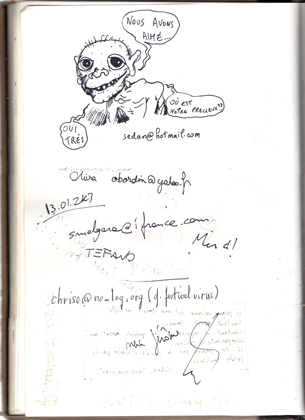 NOUS AVONS
AIMÉ...
OÙ EST
NOTRE PRECIEUX ?
OUI
TRÈS
sedan@hotmail.com
abordin@yahoo.fr
13.01.2K7
smelgara@ifrance.com
Merci!
TEFANO
chriso@no-log.org (cf. festival virus)